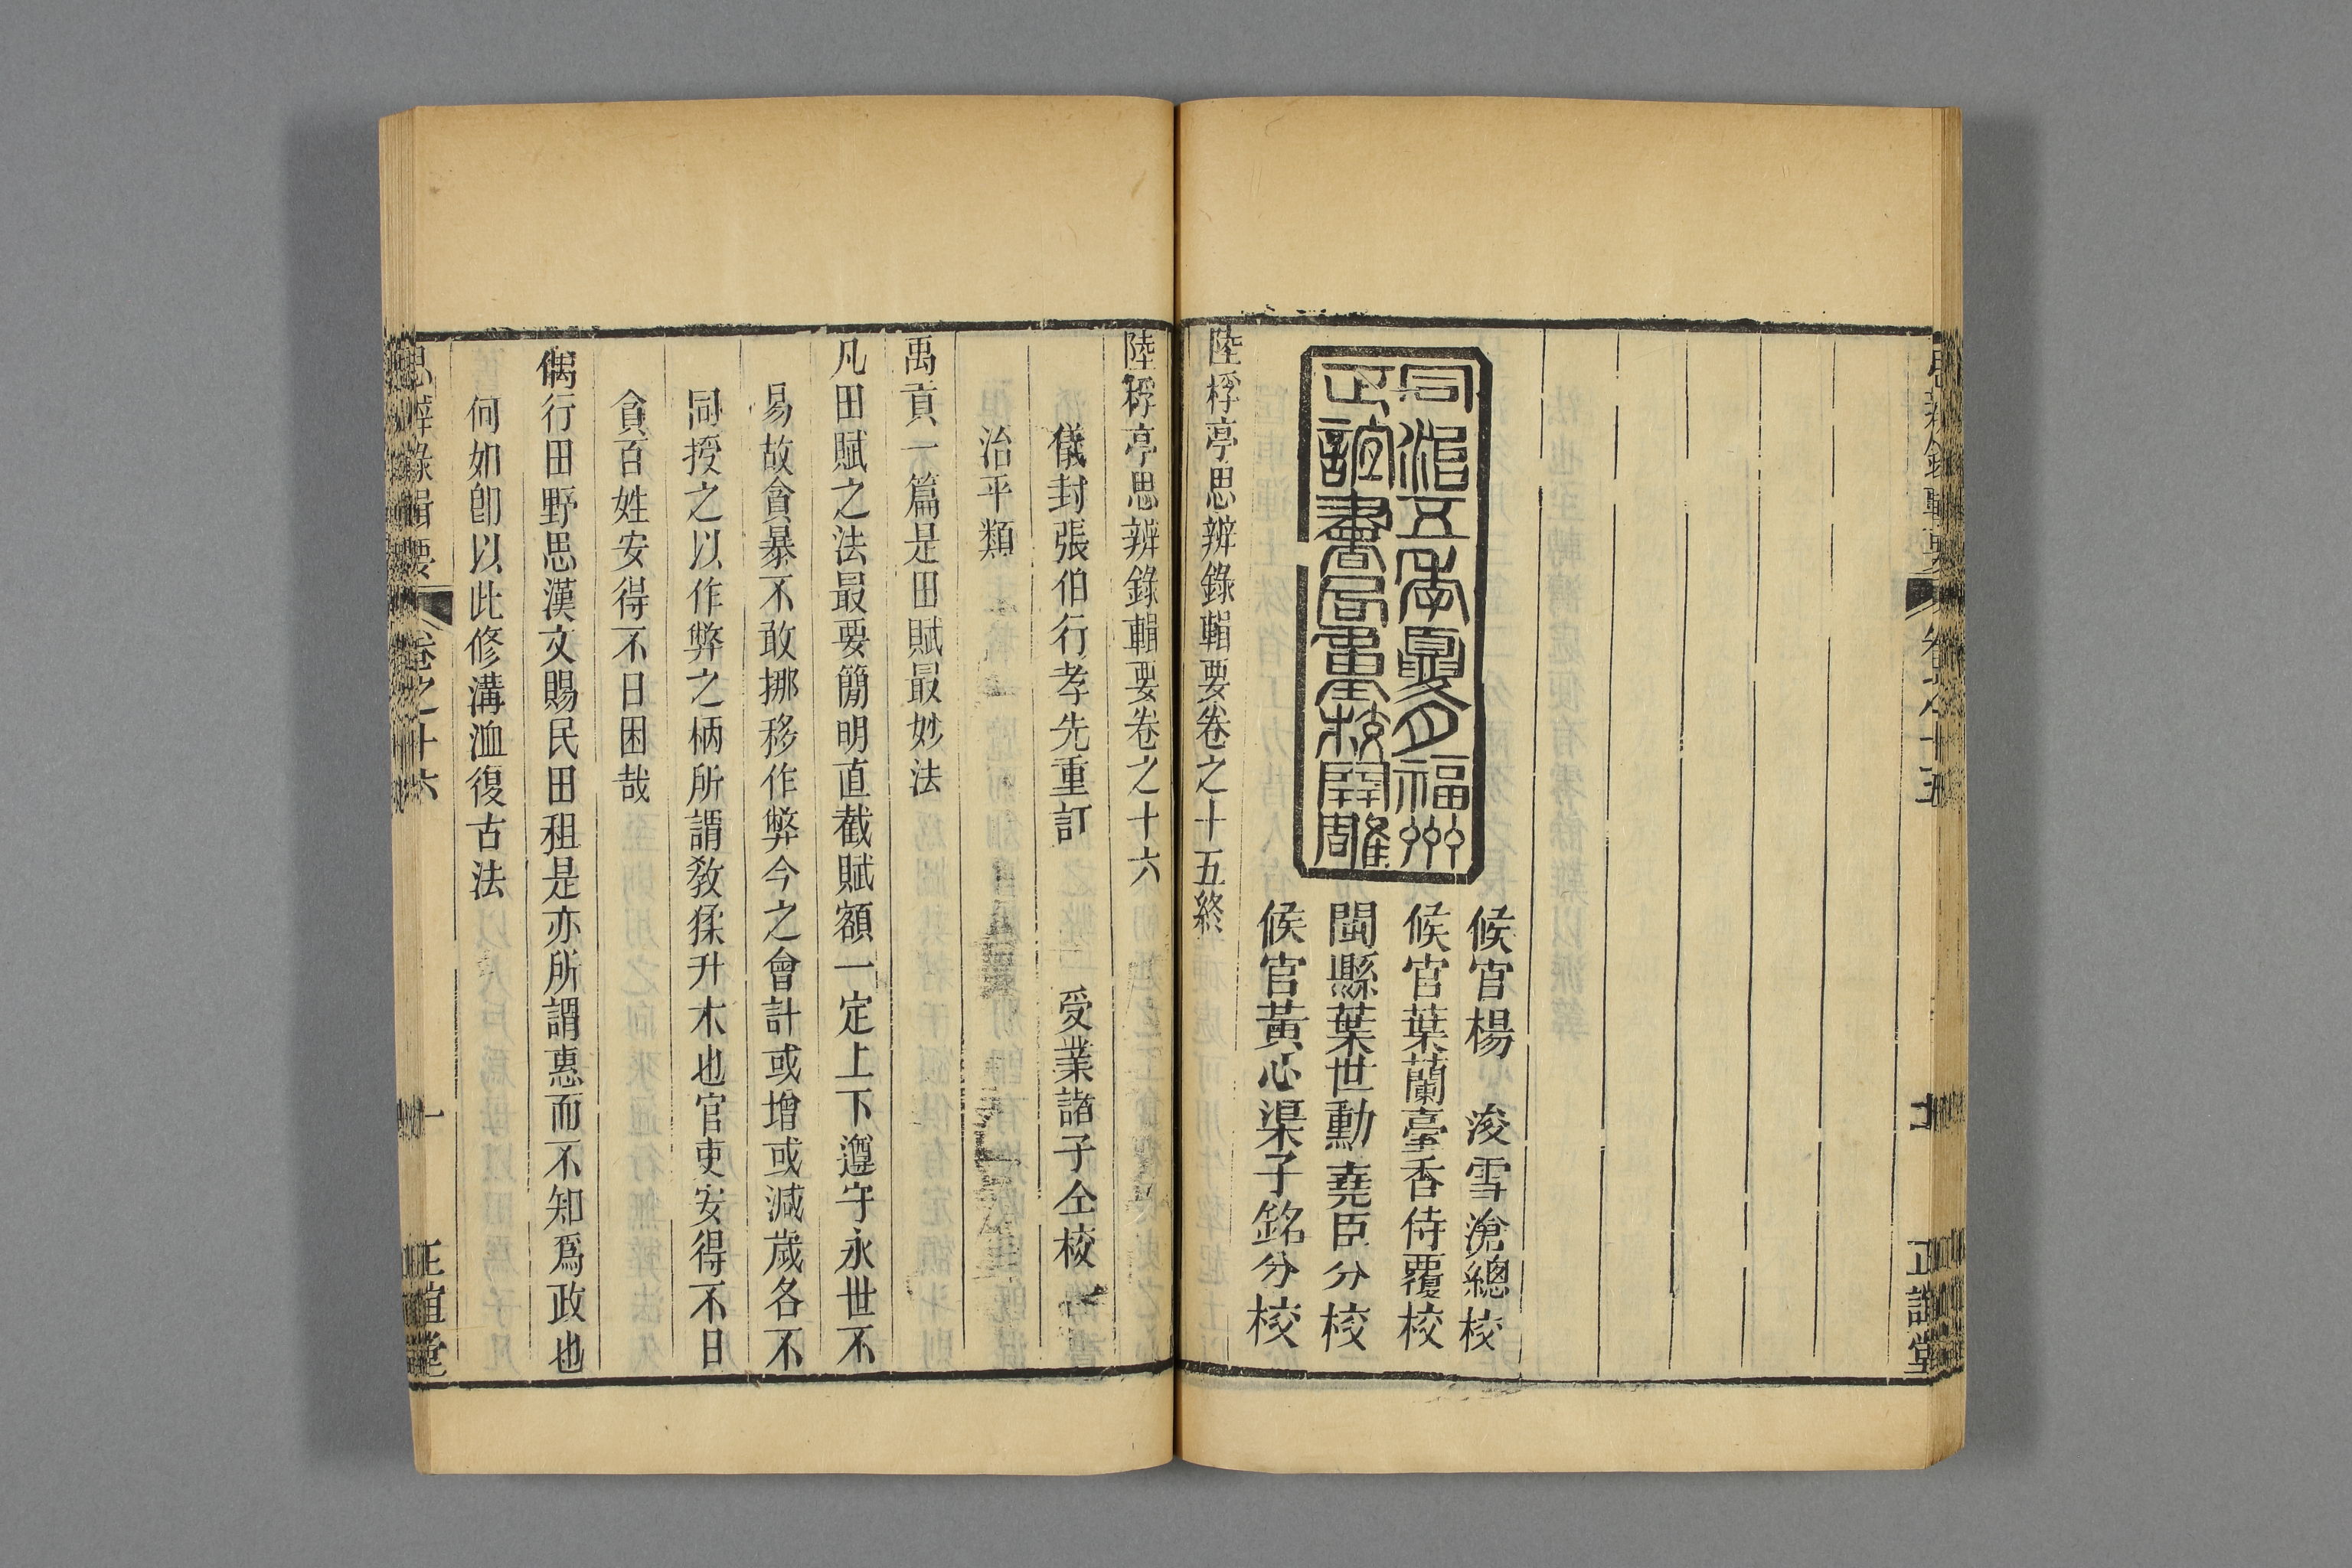 思辨錄輯要 卷之十五 七 正誼堂
候官楊 浚雪滄總校
候官葉蘭臺香侍覆校
閩縣葉世勳堯臣分校
候官黃心渠子銘分校
同治五年夏月福州
正誼書局重校開雕
陸桴亭思辨錄輯要卷之十五終
陸桴亭思辨錄輯要卷之十六
儀封張伯行孝先重訂 受業諸子仝校
治平類
禹貢一篇是田賦最妙法
凡田賦之法最要簡明直截賦額一定上下遵守永世不
易故貪暴不敢挪移作弊今之會計或增或減歲各不
同授之以作弊之柄所謂敎猱升木也官吏安得不日
貪百姓安得不日困哉
偶行田野思漢文賜民田租是亦所謂惠而不知爲政也
何如卽以此修溝洫復古法
思辨錄輯要 卷之十六 一 正誼堂